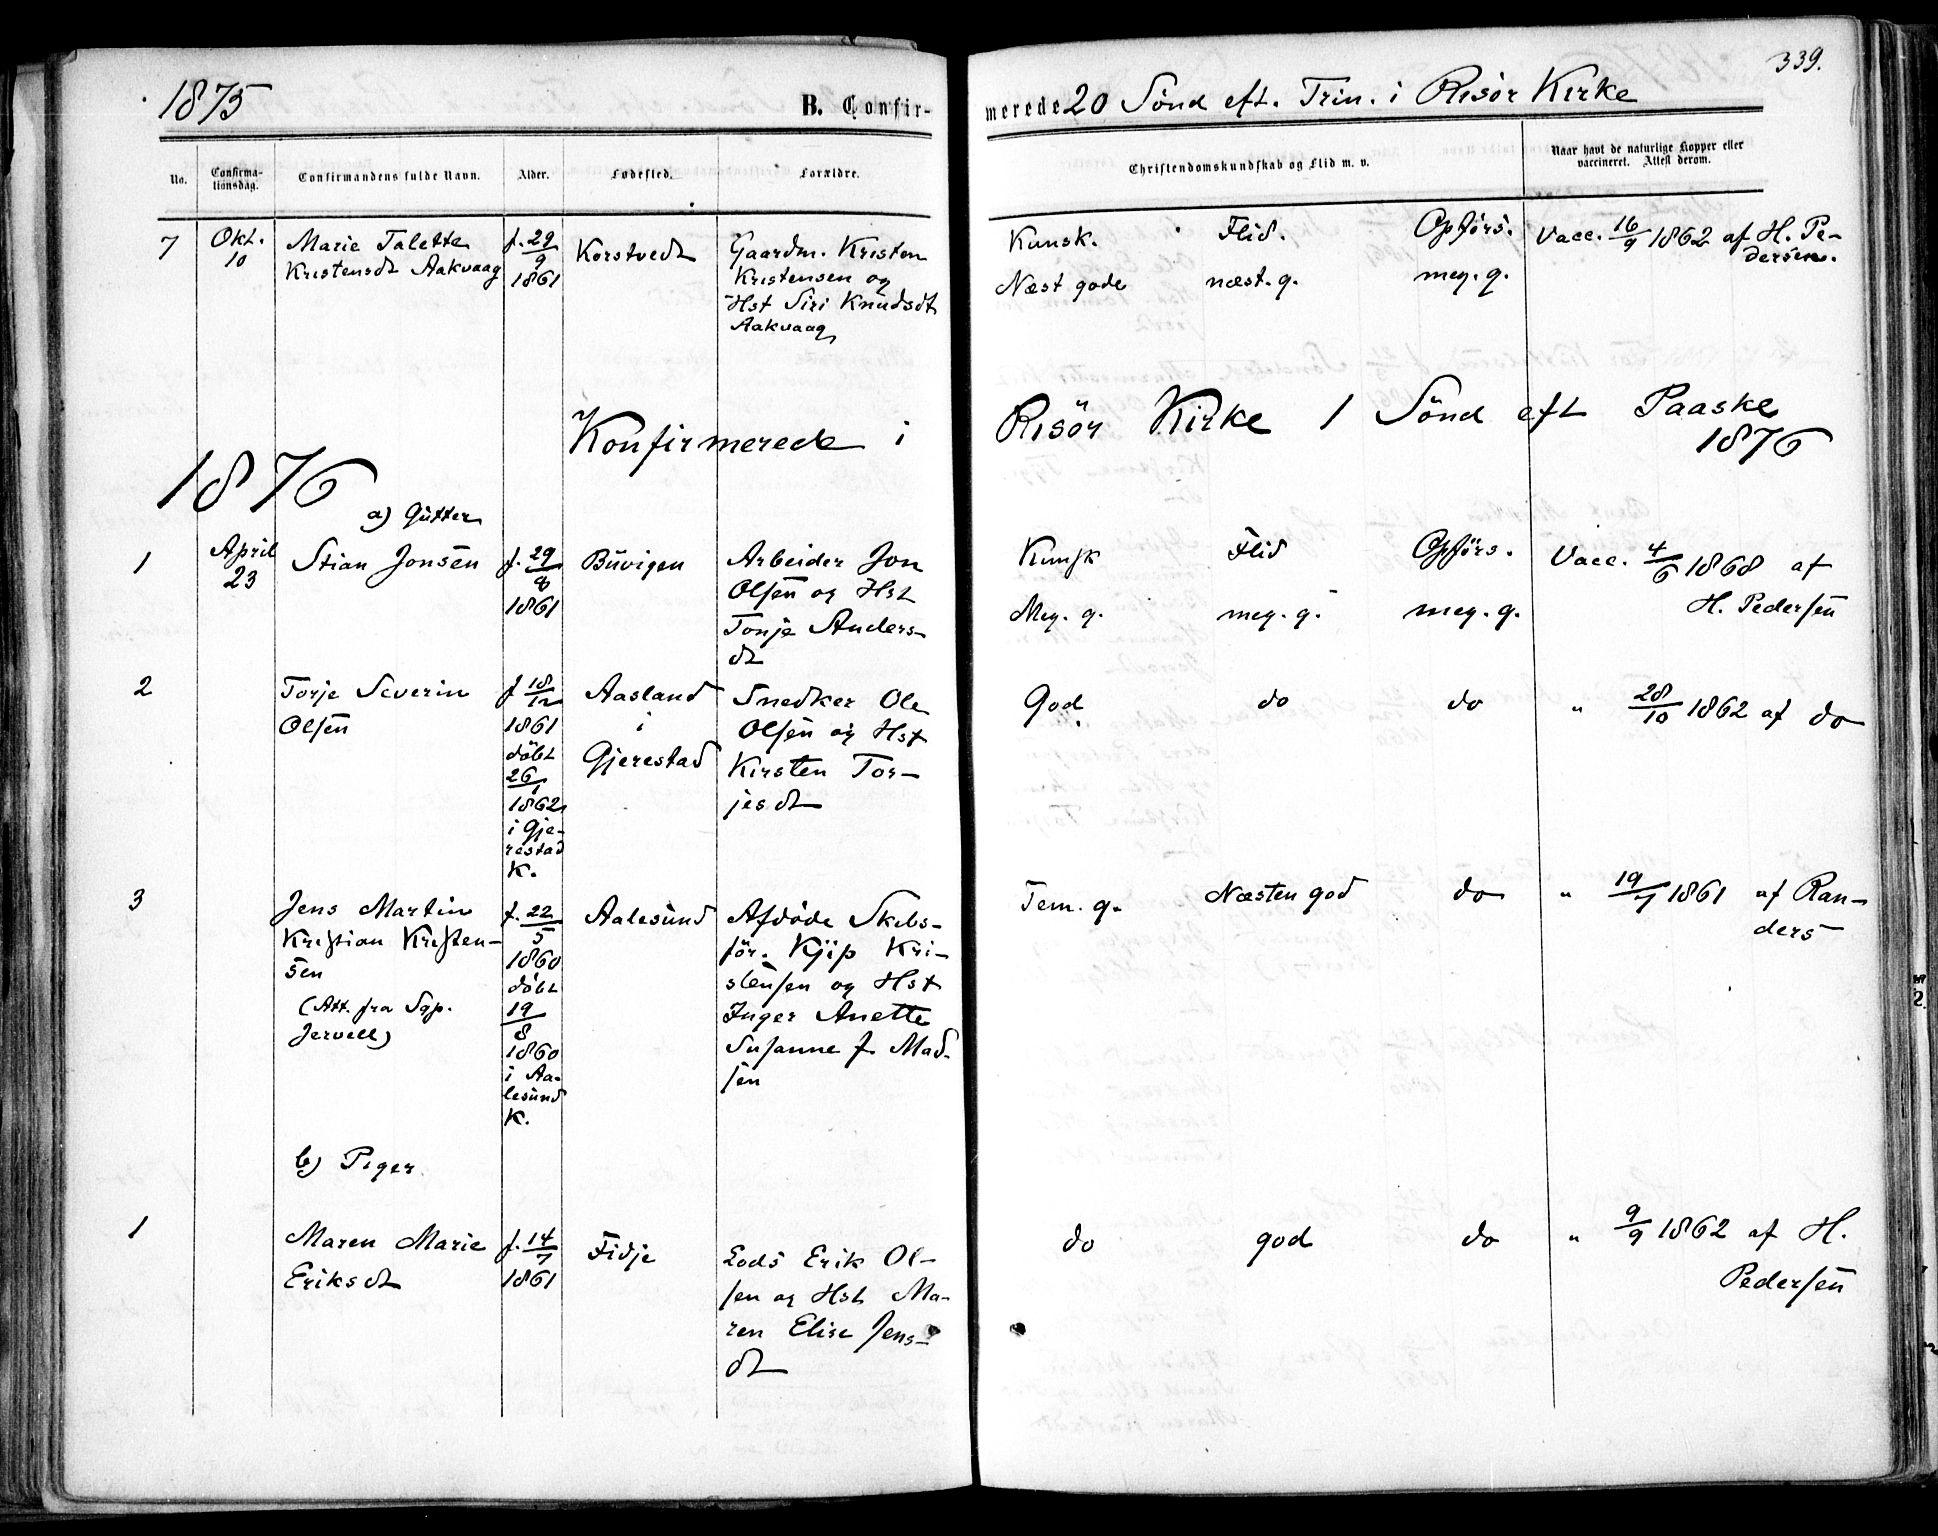 339.
1875 B. Confir-
merede 20 Sönd eft. Trin. i Risör Kirke
No.
Confirma-
tionsdag.
Confirmandens fulde Navn.
Alder.
Fødested.
Forældre.
Christendomskundskab og Flid m. v.
Naar havt de naturlige Kopper eller
vaccineret. Attest derom.
7
Okt.
10
Marie Talette
Kristensdt Aakvaag
f. 29/9
1861
Korstvedt
Gaardm. Kristen
Kristensen og
Hst Siri Knudsdt
Aakvaag
Kunsk. Flid. Opförs.
Næst gode næst. g. meg. g.
Vacc. 16/9 1862 af H. Pe-
dersen.
Konfirmerede i Risör Kirke 1 Sönd eft Paaske
1876
1876
a) Gutter
1
April
23
Stian Jonsen
f. 29/8
1861
Buvigen
Arbeider Jon
Olsen og Hst
Tonje Anders-
dt
Kunsk Flid Opförs.
Meg. g. meg. g. meg. g.
Vacc. 4/6 1868 af
H. Pedersen
2
Torje Severin
Olsen
f 18/12
1861
döbt
26/1
1862
i Gje-
restad
K.
Aasland
i
Gjerestad
Snedker Ole
Olsen og Hst
Kirsten Tor-
jesdt
God do do
" 28/10 1862 af do
3
Jens Martin
Kristian Kristen-
sen
(Att. fra Sgp.
Jervell)
f. 22/5
1860
döbt
19/8
1860
i Aa-
lesund
K.
Aalesund
Afdöde Skibs-
för. Kjip Kri-
stensen og Hst
Inger Anette
Susanne f. Mad-
sen
Tem. g. Næsten god do
" 19/7 1861 af Ran-
ders
b) Piger
1
Maren Marie
Eriksdt
f. 14/7
1861
Fidje
Lods Erik Ol-
sen og Hst Ma-
ren Elise Jens-
dt
do god do
" 9/9 1862 af H.
Pedersen